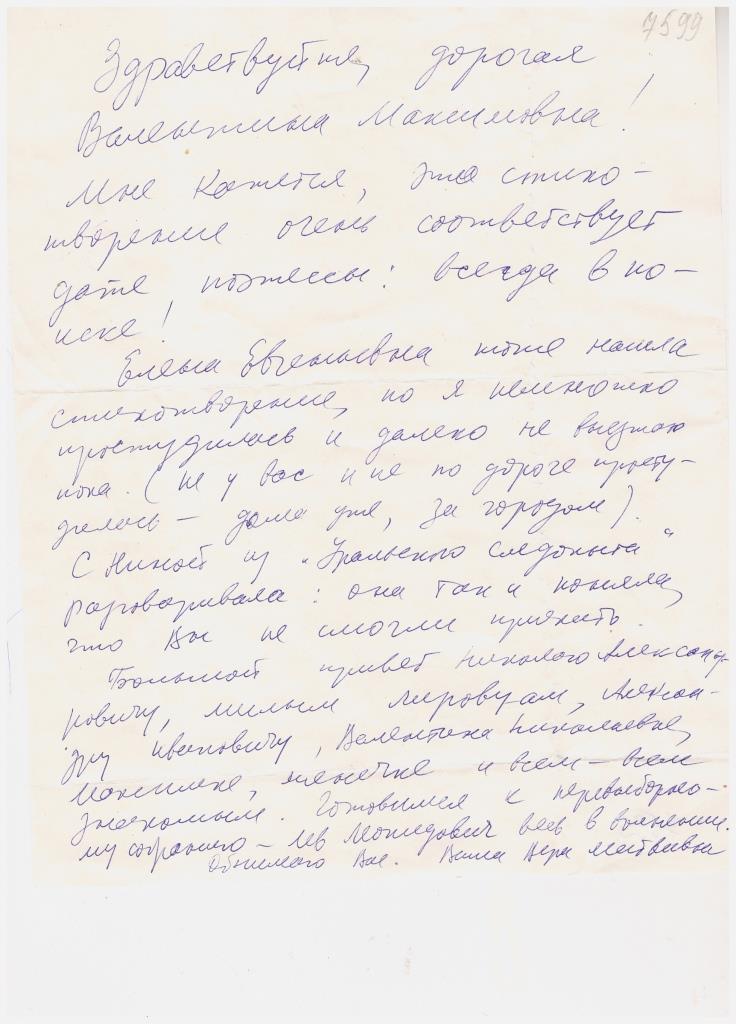 7599
Здравствуйте, дорогая
Валентина Максимовна!
Мне кажется, это стихо-
творение очень соответствует
дате поэтессы: всегда в по-
иске!
Елена Евгеньевна тоже нашла
стихотворение, но я немножко
простудилась и далеко не выезжаю
пока. (Не у вас и не по дороге просту-
дилась – дома уже, за городом).
С Ниной из „Уральского следопыта"
разговаривала: она так и поняла,
что Вы не смогли приехать.
Большой привет Николаю Александ-
ровичу, милым Алексан-
дру Ивановичу, Валентине Николаевне,
Максимке, и всем-всем
знакомым. Готовимся к перевыборно-
му собранию – Лев весь в волнении.
Обнимаю Вас. Ваша Вера Матвеевна